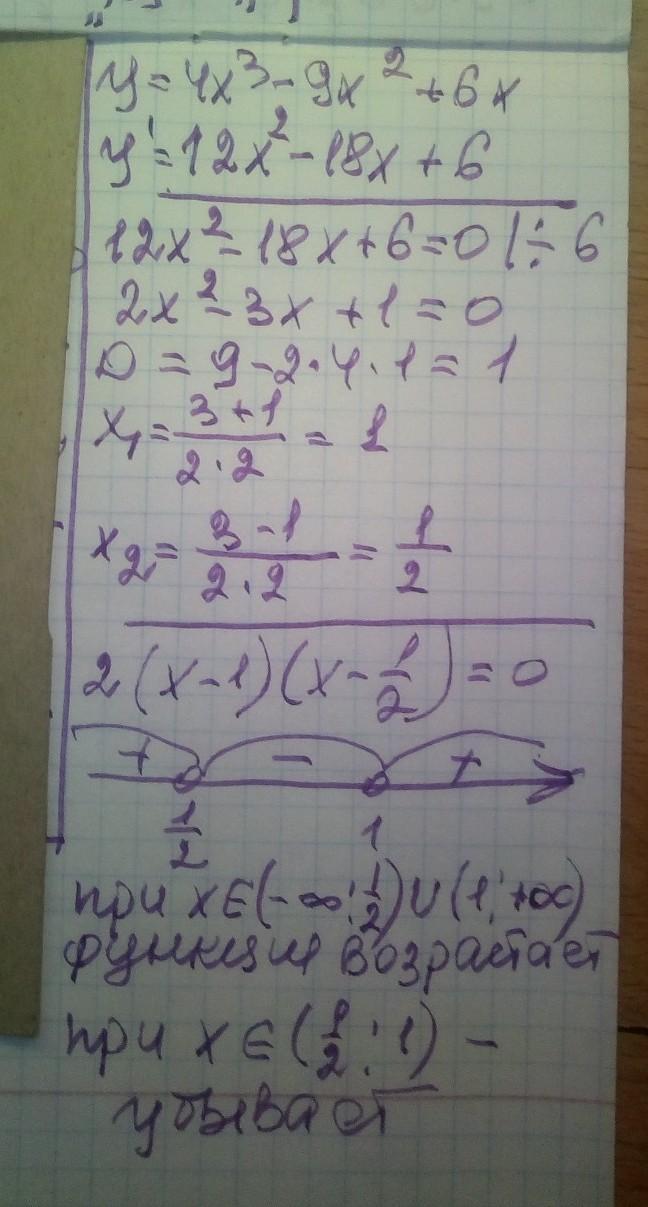 y = 4x³ - 9x² + 6x
y' = 12x² - 18x + 6
12x² - 18x + 6 = 0 | ÷ 6
2x² - 3x + 1 = 0
D = 9 - 2·4·1 = 1
x₁ = (3+1)/(2·2) = 1
x₂ = (3-1)/(2·2) = 1/2
2(x-1)(x-1/2) = 0
+ - +
1/2 1
при x∈(-∞; 1/2)∪(1; +∞)
функция возрастает
при x∈(1/2; 1) -
убывает